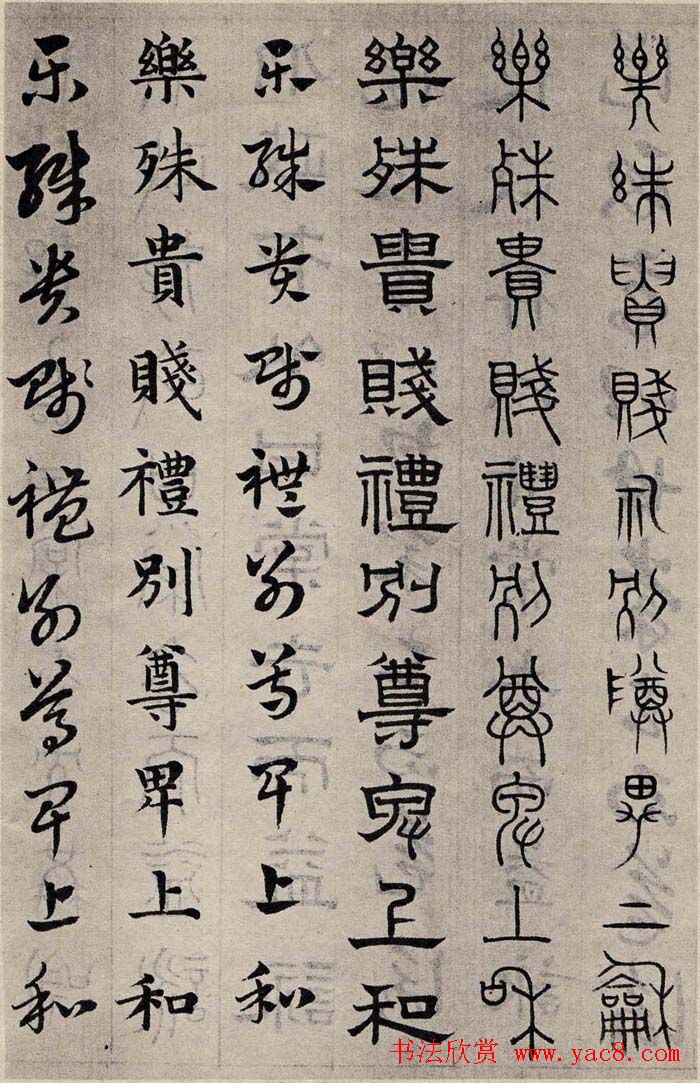 樂殊貴賤禮別尊卑上和
樂殊貴賤禮別尊卑上和
樂殊貴賤禮別尊卑上和
乐殊贵贱禮别尊卑上和
樂殊貴賤禮別尊卑上和
乐殊贵贱禮别尊卑上和
书法欣赏 www.yac8.com